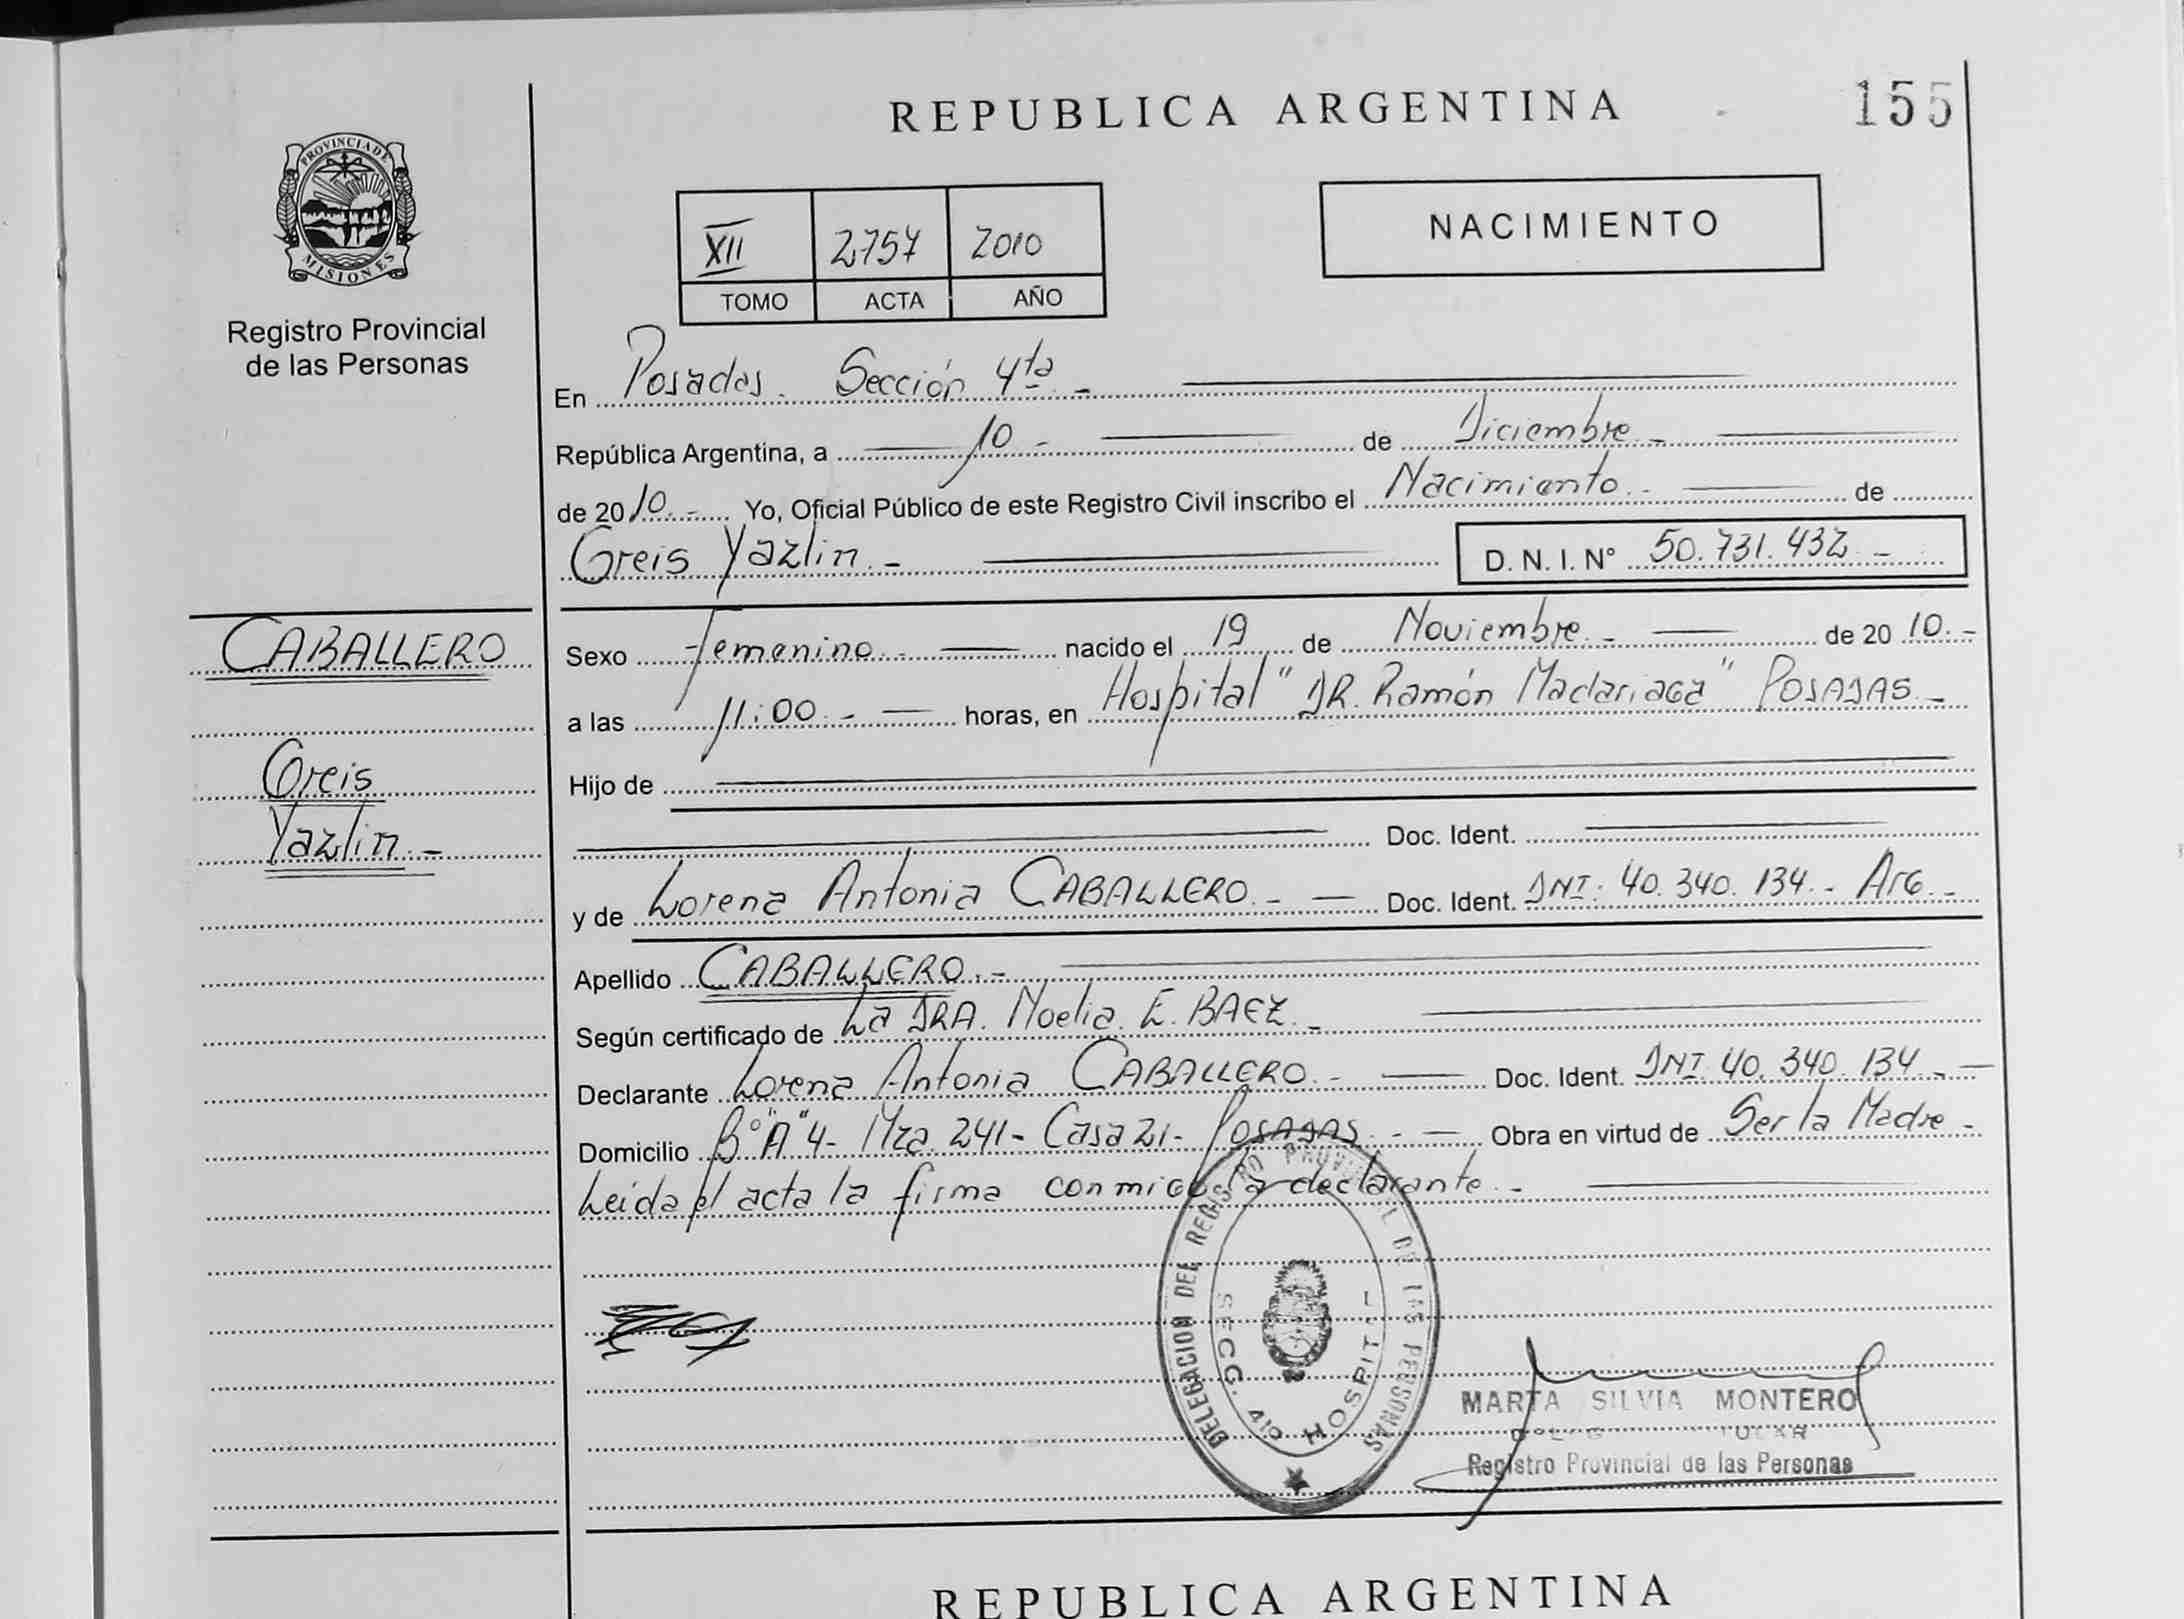 REPUBLICA ARGENTINA
155
PROVINCIA DE
MISIONES
Registro Provincial
de las Personas
XII 2757 2010
TOMO ACTA AÑO
NACIMIENTO
En Posadas. Sección 4ta. -
República Argentina, a 10 - de Diciembre. -
de 2010. - Yo, Oficial Público de este Registro Civil inscribo el Nacimiento. - de
Greis Yazlin. - D. N. I. N° 50.731.432 -
CABALLERO
Greis
Yazlin. -
Sexo Femenino. - nacido el 19 de Noviembre. - de 2010. -
a las 11:00. - horas, en Hospital "DR. Ramón Madariaga" POSADAS. -
Hijo de
Doc. Ident.
y de Lorena Antonia CABALLERO. - Doc. Ident. DNI. 40.340.134. - Arg. -
Apellido CABALLERO. -
Según certificado de La DRA. Noelia. E. BAEZ. -
Declarante Lorena Antonia CABALLERO. - Doc. Ident. DNI. 40.340.134. -
Domicilio B° "A" 4 - Mza. 241 - Casa 21 - POSADAS. - Obra en virtud de Ser la Madre -
Leida el acta la firma conmigo la declarante. -
DELEGACION DEL REGISTRO PROVINCIAL DE LAS PERSONAS
SECC. 4ta HOSPITAL
MARTA SILVIA MONTERO
Registro Provincial de las Personas
REPUBLICA ARGENTINA